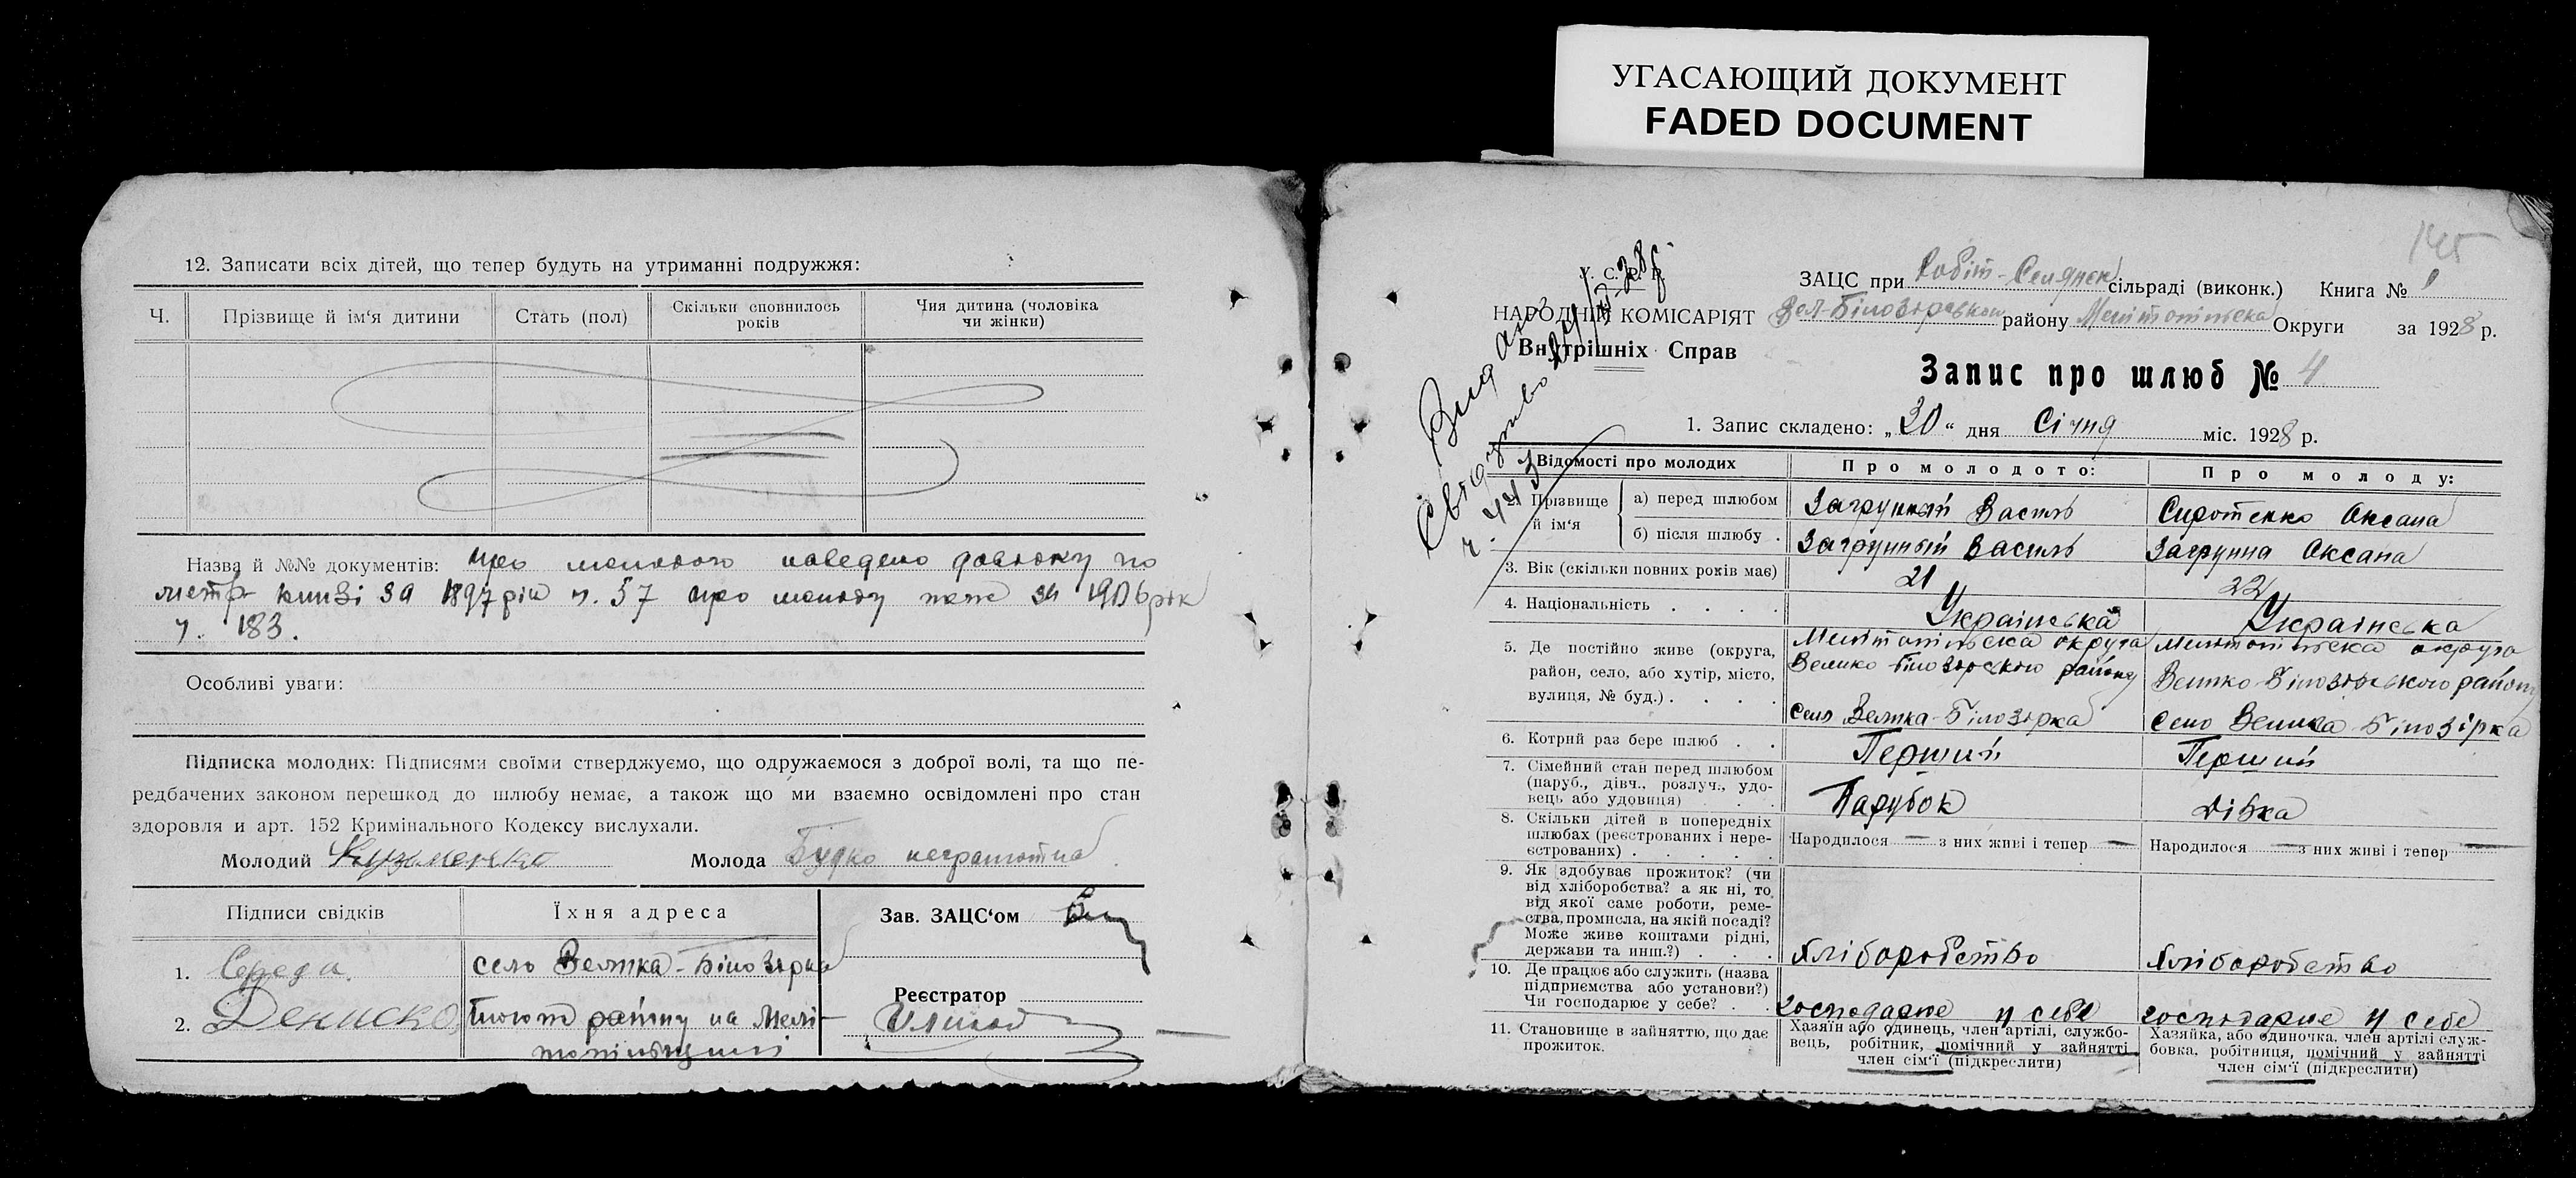 УГАСАЮЩИЙ ДОКУМЕНТ
FADED DOCUMENT
12. Записати всіх дітей, що тепер будуть на утриманні подружжя:
Ч. Прізвище й ім‘я дитини Стать (пол) Скільки сповнилось років Чия дитина (чоловіка чи жінки)
Назва й №№ документів: про молодого наведено довідку по
метр книзі за 1897 рік ч. 57 про молоду теж за 1906 рік
ч. 183.
Особливі уваги:
Підписка молодих: Підписями своїми стверджуємо, що одружаємося з доброї волі, та що пе-
редбачених законом перешкод до шлюбу немає, а також що ми взаємно освідомлені про стан
здоровля и арт. 152 Кримінального Кодексу вислухали.
Молодий Кузменко Молода Будко неграмотна
Підписи свідків Їхня адреса Зав. ЗАЦС‘ом
1. Середа село Велика-Білозірка
Реєстратор
2. Дениско району на Мелі-
топільщині
145
У. С. Р. Р.
НАРОДНІЙ КОМІСАРІЯТ
Внутрішніх Справ
Видано
Свідоцтво
ч. 443
ЗАЦС при Робіт-Селянск сільраді (виконк.) Книга № 1
Вел-Білозірськом району Мелітопільска Округи за 1928 р.
Запис про шлюб № 4
1. Запис складено: „30“ дня Січня міс. 1928 р.
Відомості про молодих Про молодого: Про молоду:
2. Прізвище й ім‘я а) перед шлюбом Загрунный Василь Сиротенко Оксана
б) після шлюбу Загрунный Василь Загрунна Оксана
3. Вік (скільки повних років має) 21 22
4. Національність Українська Українська
5. Де постійно живе (округа, Мелітопільска округа Мелітопільска округа
район, село, або хутір, місто, Велико-Білозірского району Велико-Білозірського району
вулиця, № буд.) село Велика-Білозірка село Велика-Білозірка
6. Котрий раз бере шлюб Перший Перший
7. Сімейний стан перед шлюбом
(паруб., дівч., розлуч., удо-
вець або удовиця) Парубок Дівка
8. Скільки дітей в попередніх
шлюбах (реєстрованих і нере- Народилося — з них живі і тепер — Народилося — з них живі і тепер —
єстрованих)
9. Як здобуває прожиток? (чи
від хліборобства? а як ні, то
від якої саме роботи, реме-
ства, промисла, на якій посаді?
Може живе коштами рідні,
держави та инш.?) Хліборобство Хліборобство
10. Де працює або служить (назва
підприємства або установи?)
Чи господарює у себе? господарює у себе господарює у себе
11. Становище в зайняттю, що дає Хазяїн або одинець, член артілі, службо- Хазяйка, або одиночка, член артілі служ-
прожиток. вець, робітник, помічний у зайнятті бовка, робітниця, помічний у зайнятті
член сім‘ї (підкреслити) член сім‘ї (підкреслити)